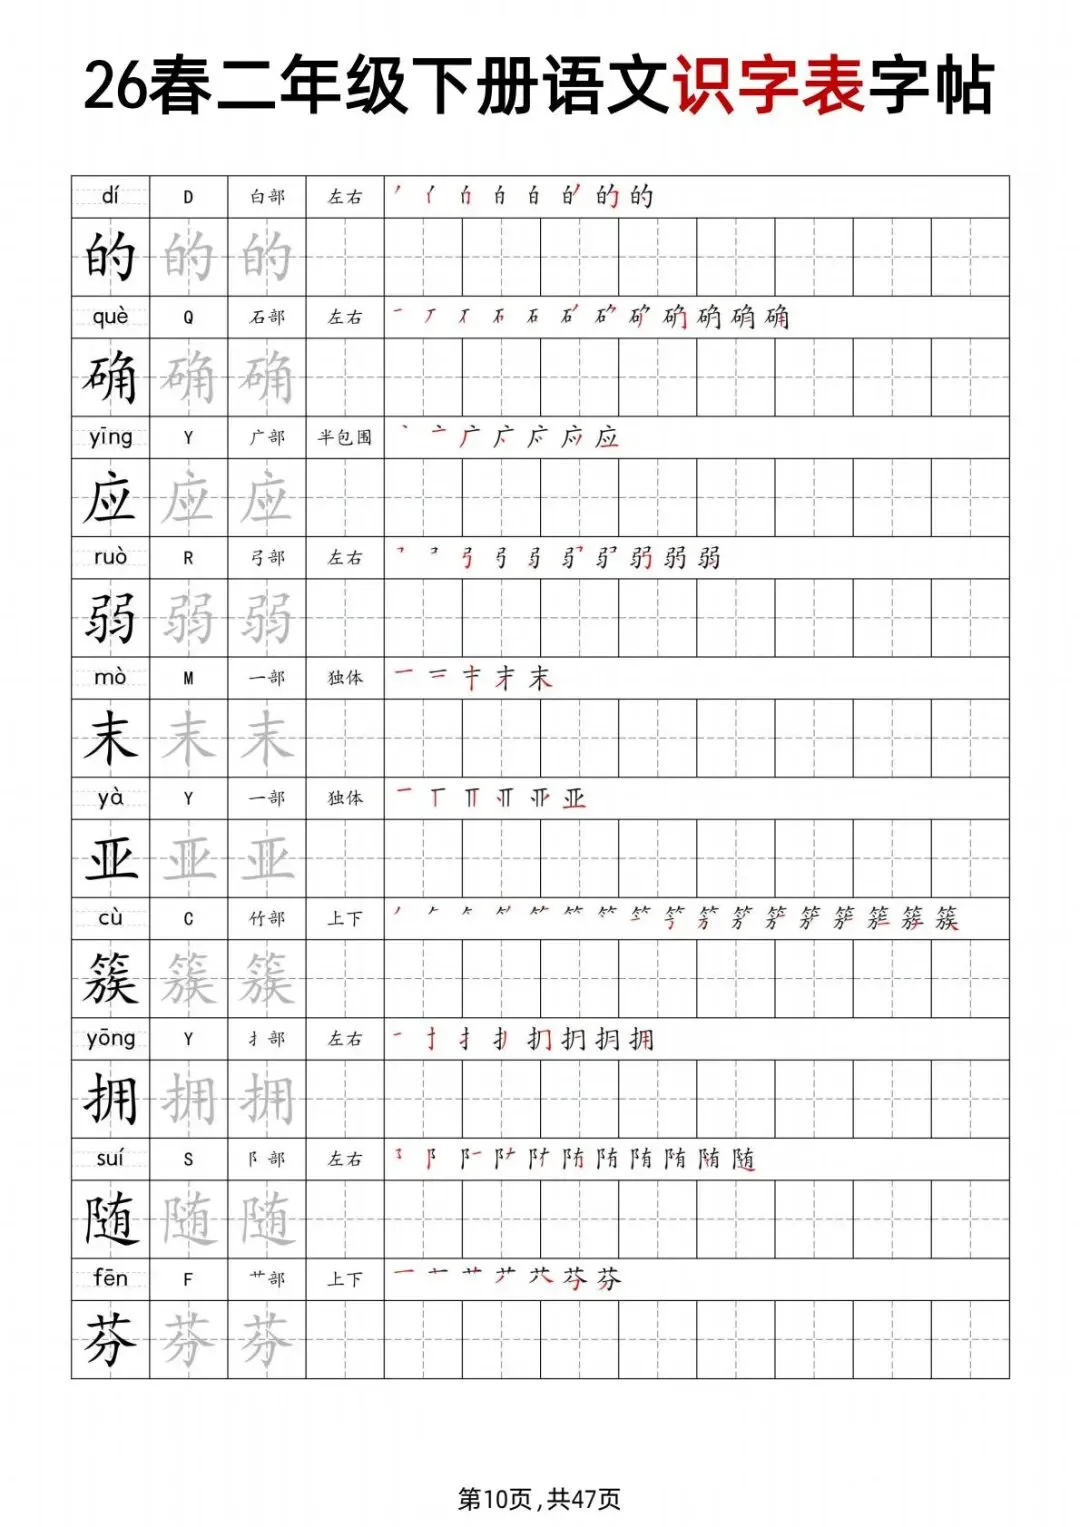 26春二年级下册语文识字表字帖
dí D 白部 左右
的 的 的
què Q 石部 左右
确 确 确
yīng Y 广部 半包围
应 应 应
ruò R 弓部 左右
弱 弱 弱
mò M 一部 独体
末 末 末
yà Y 一部 独体
亚 亚 亚
cù C 竹部 上下
簇 簇 簇
yōng Y 扌部 左右
拥 拥 拥
suí S 阝部 左右
随 随 随
fēn F 艹部 上下
芬 芬 芬
第10页,共47页